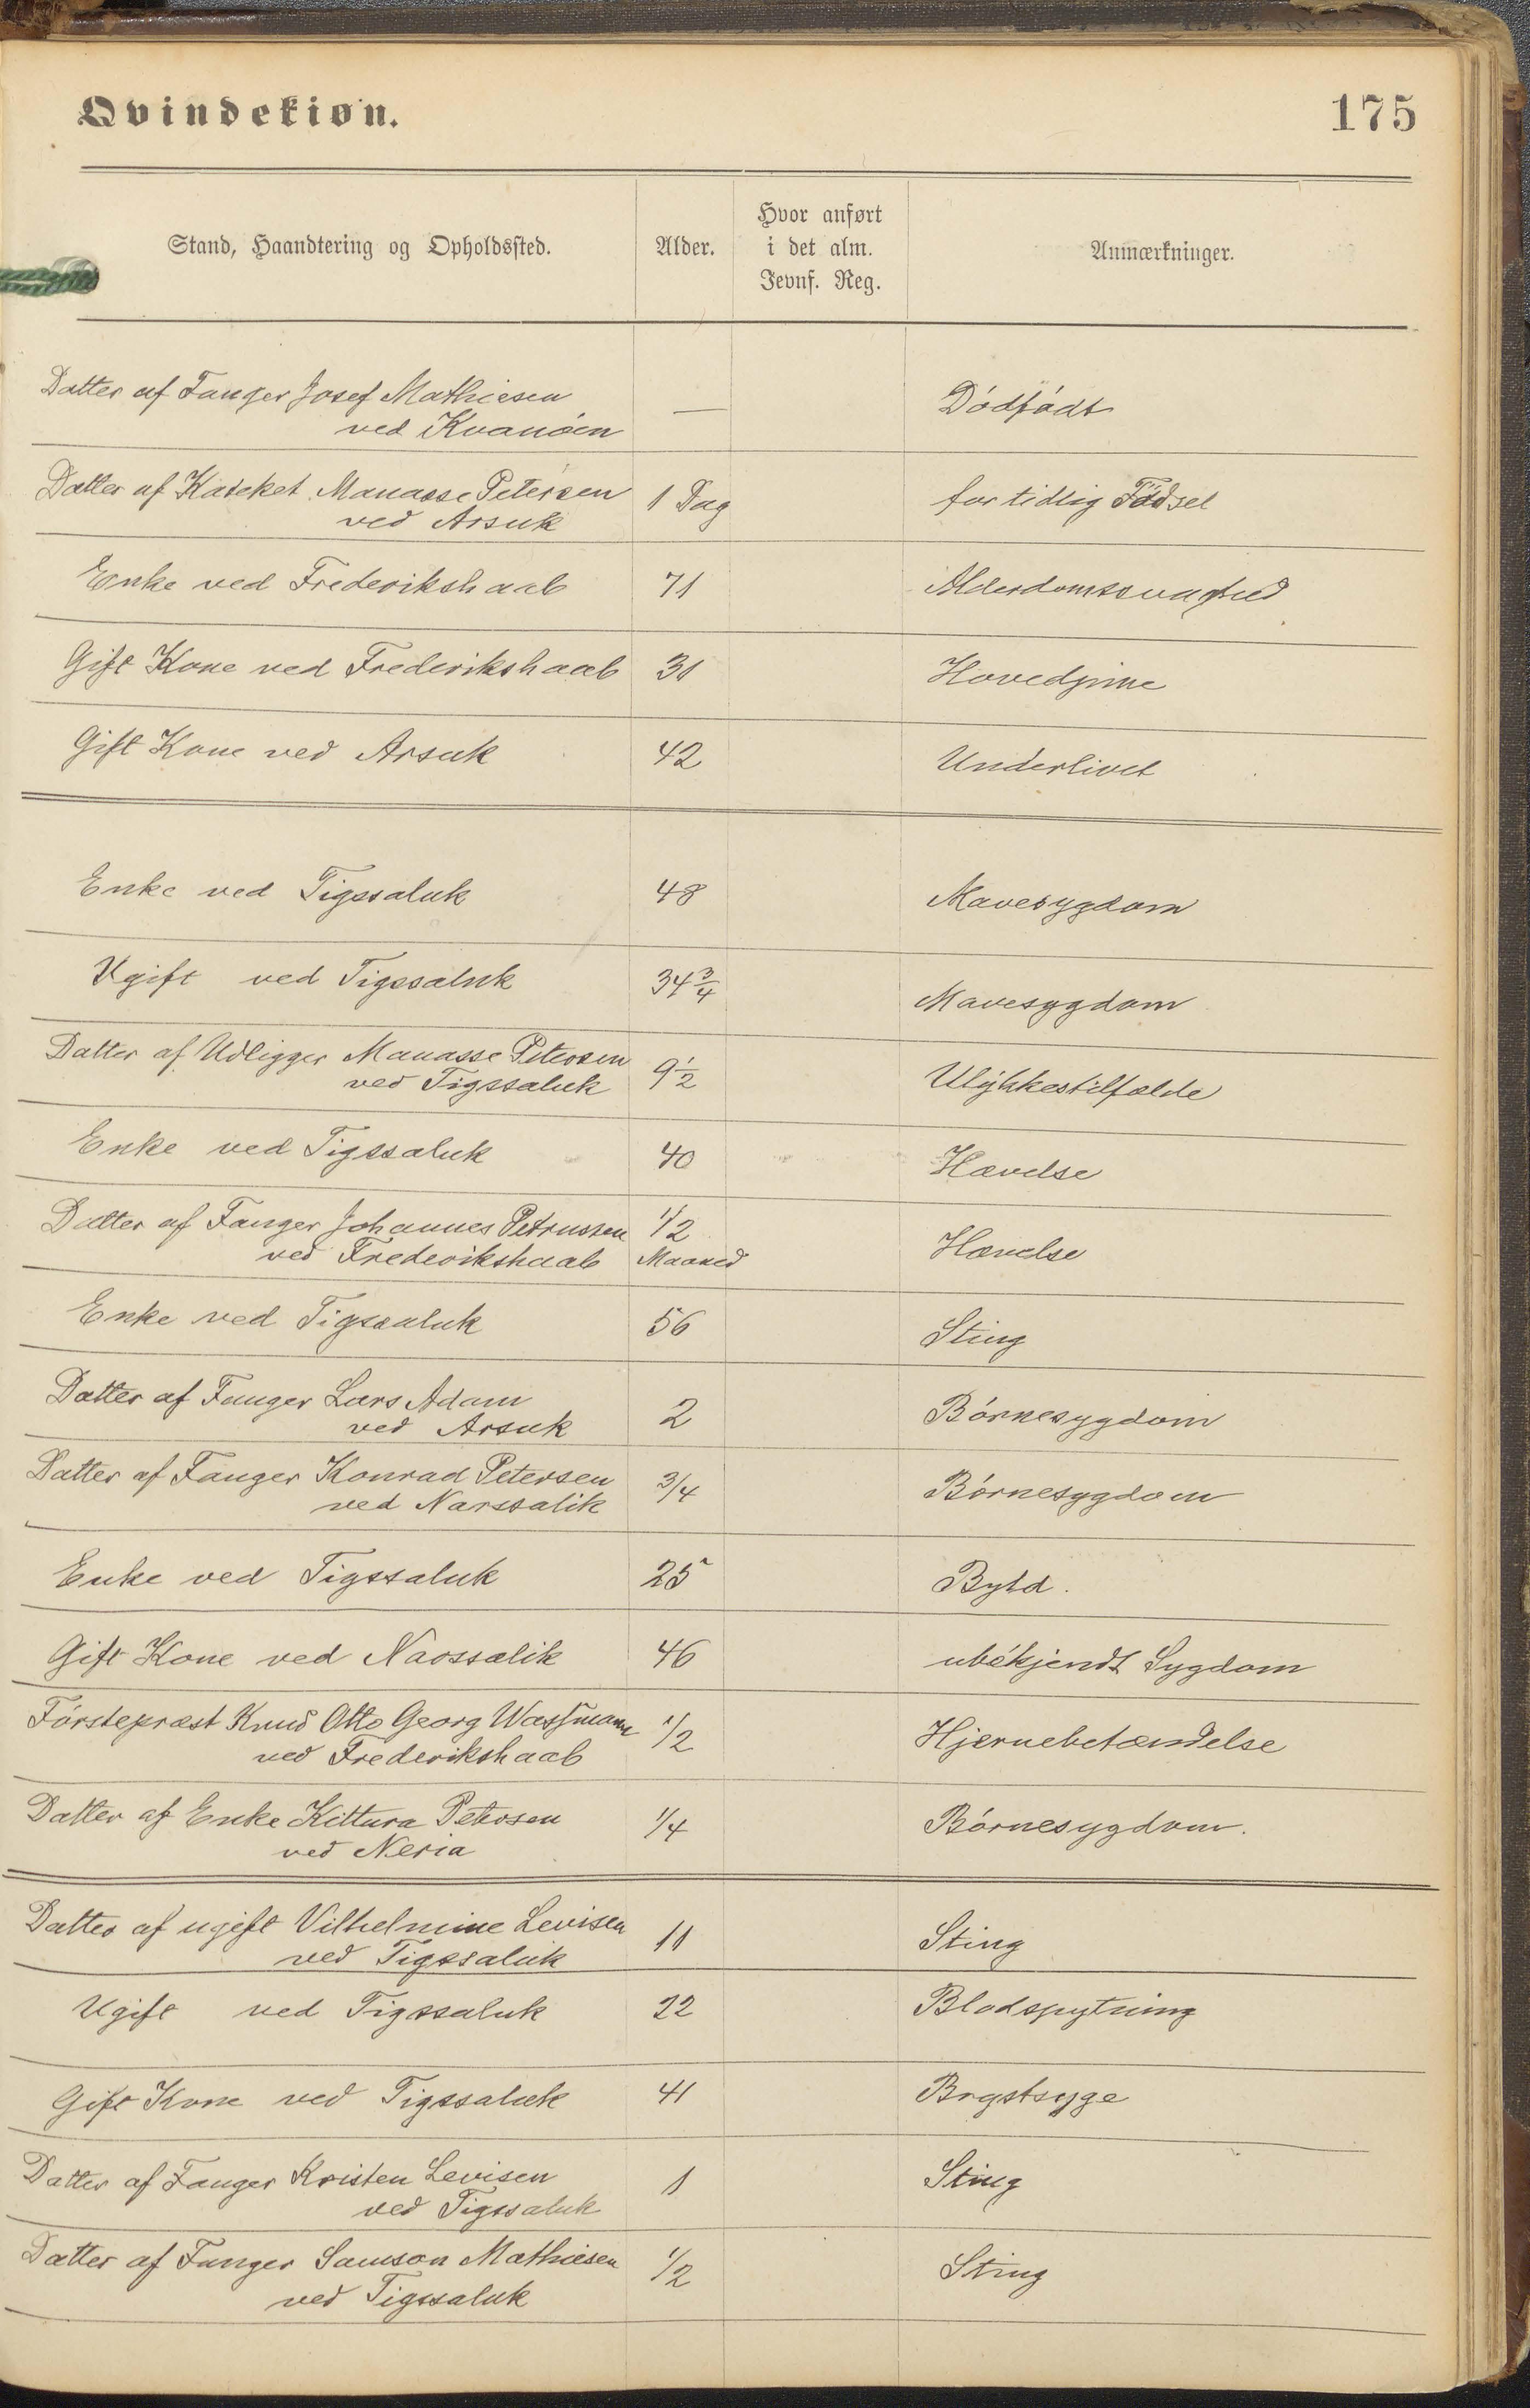 Qvindekiøn.
175
Stand, Haandtering og Opholdssted.
Alder.
Hvor anført
i det alm.
Jevnf. Reg.
Anmærkninger.
Datter af Fanger Josef Mathiesen
ved Kvanöen
—
Dödfödt
Datter af Kateket Manasse Petersen
ved Arsuk
1 Dag
for tidlig Födsel
Enke ved Frederikshaab
71
Alderdomssvaghed
Gift Kone ved Frederikshaab
31
Hovedpine
Gift Kone ved Arsuk
42
Underlivet
Enke ved Tigssaluk
48
Mavesygdom
Ugift ved Tigssaluk
34 3/4
Mavesygdom
Datter af Udligger Manasse Petersen
ved Tigssaluk
9 1/2
Ulykkestilfælde
Enke ved Tigssaluk
40
Hævelse
Datter af Fanger Johannes Petrussen
ved Frederikshaab
1/2
Maaned
Hævelse
Enke ved Tigssaluk
56
Sting
Datter af Fanger Lars Adam
ved Arsuk
2
Börnesygdom
Datter af Fanger Konrad Petersen
ved Narssalik
3/4
Börnesygdom
Enke ved Tigssaluk
25
Byld.
Gift Kone ved Narssalik
46
ubekjendt Sygdom
Förstepræst Knud Otto Georg Wassmann
ved Frederikshaab
1/2
Hjernebetændelse
Datter af Enke Kittura Petersen
ved Neria
1/4
Börnesygdom.
Datter af ugift Vilhelmine Levisen
ved Tigssaluk
11
Sting
Ugift ved Tigssaluk
22
Blodspytning
Gift Kone ved Tigssaluk
41
Brystsyge
Datter af Fanger Kristen Levisen
ved Tigssaluk
1
Sting
Datter af Fanger Samson Mathiesen
ved Tigssaluk
1/2
Sting